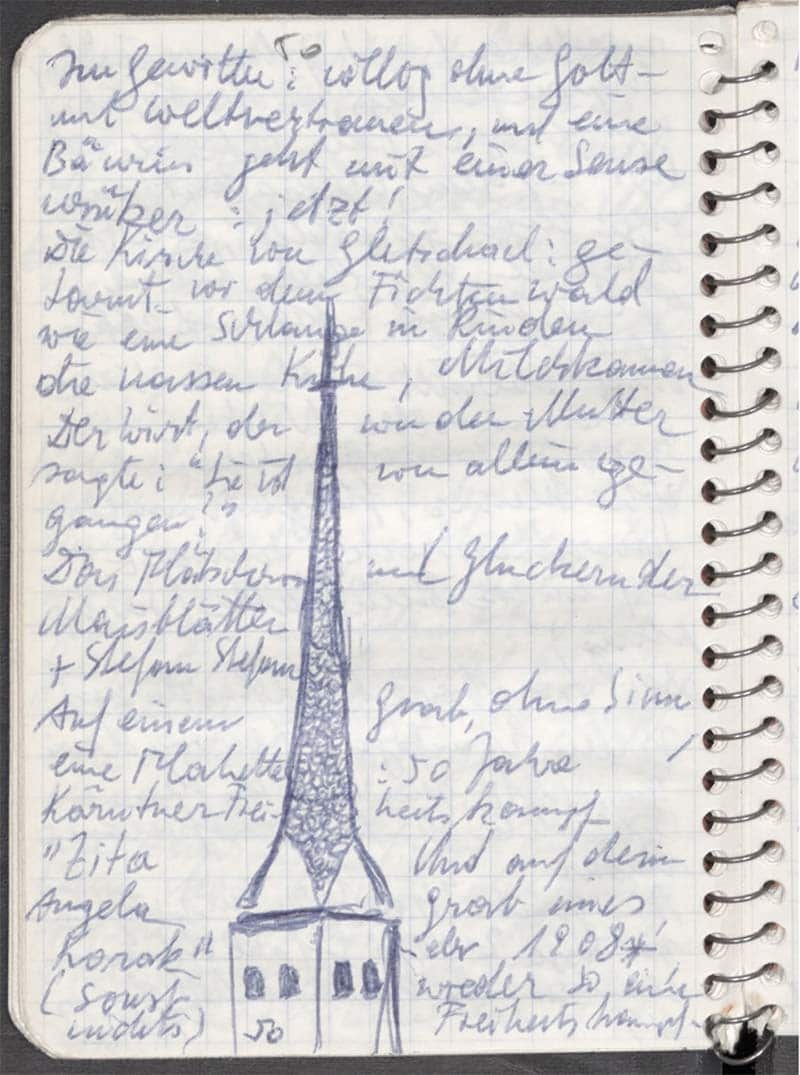 50
Im Gewitter: völlig ohne Gott-
mit Weltvertrauen, und eine
Bäurin geht mit einer Sense
vorüber: jetzt!
Die Kirche von : ge-
tarnt vor dem Fichtenwald
wie eine Schlange in Rinden
die nassen Kühe, Milchkannen
Der Wirt, der von der Mutter
sagte: "Sie ist von allein ge-
gangen!"
Das Plätschern und Gluckern der
Maisblätter
+ Stefan Stefan
Auf einem Grab, ohne Sinn
eine Plakette : 50 Jahre
Kärntner Frei- heitskampf
"Zita Und auf dem
Angela Grab eines
Korak" der 1908*
(sonst wieder so ein
nichts) Freiheitskampf-
50